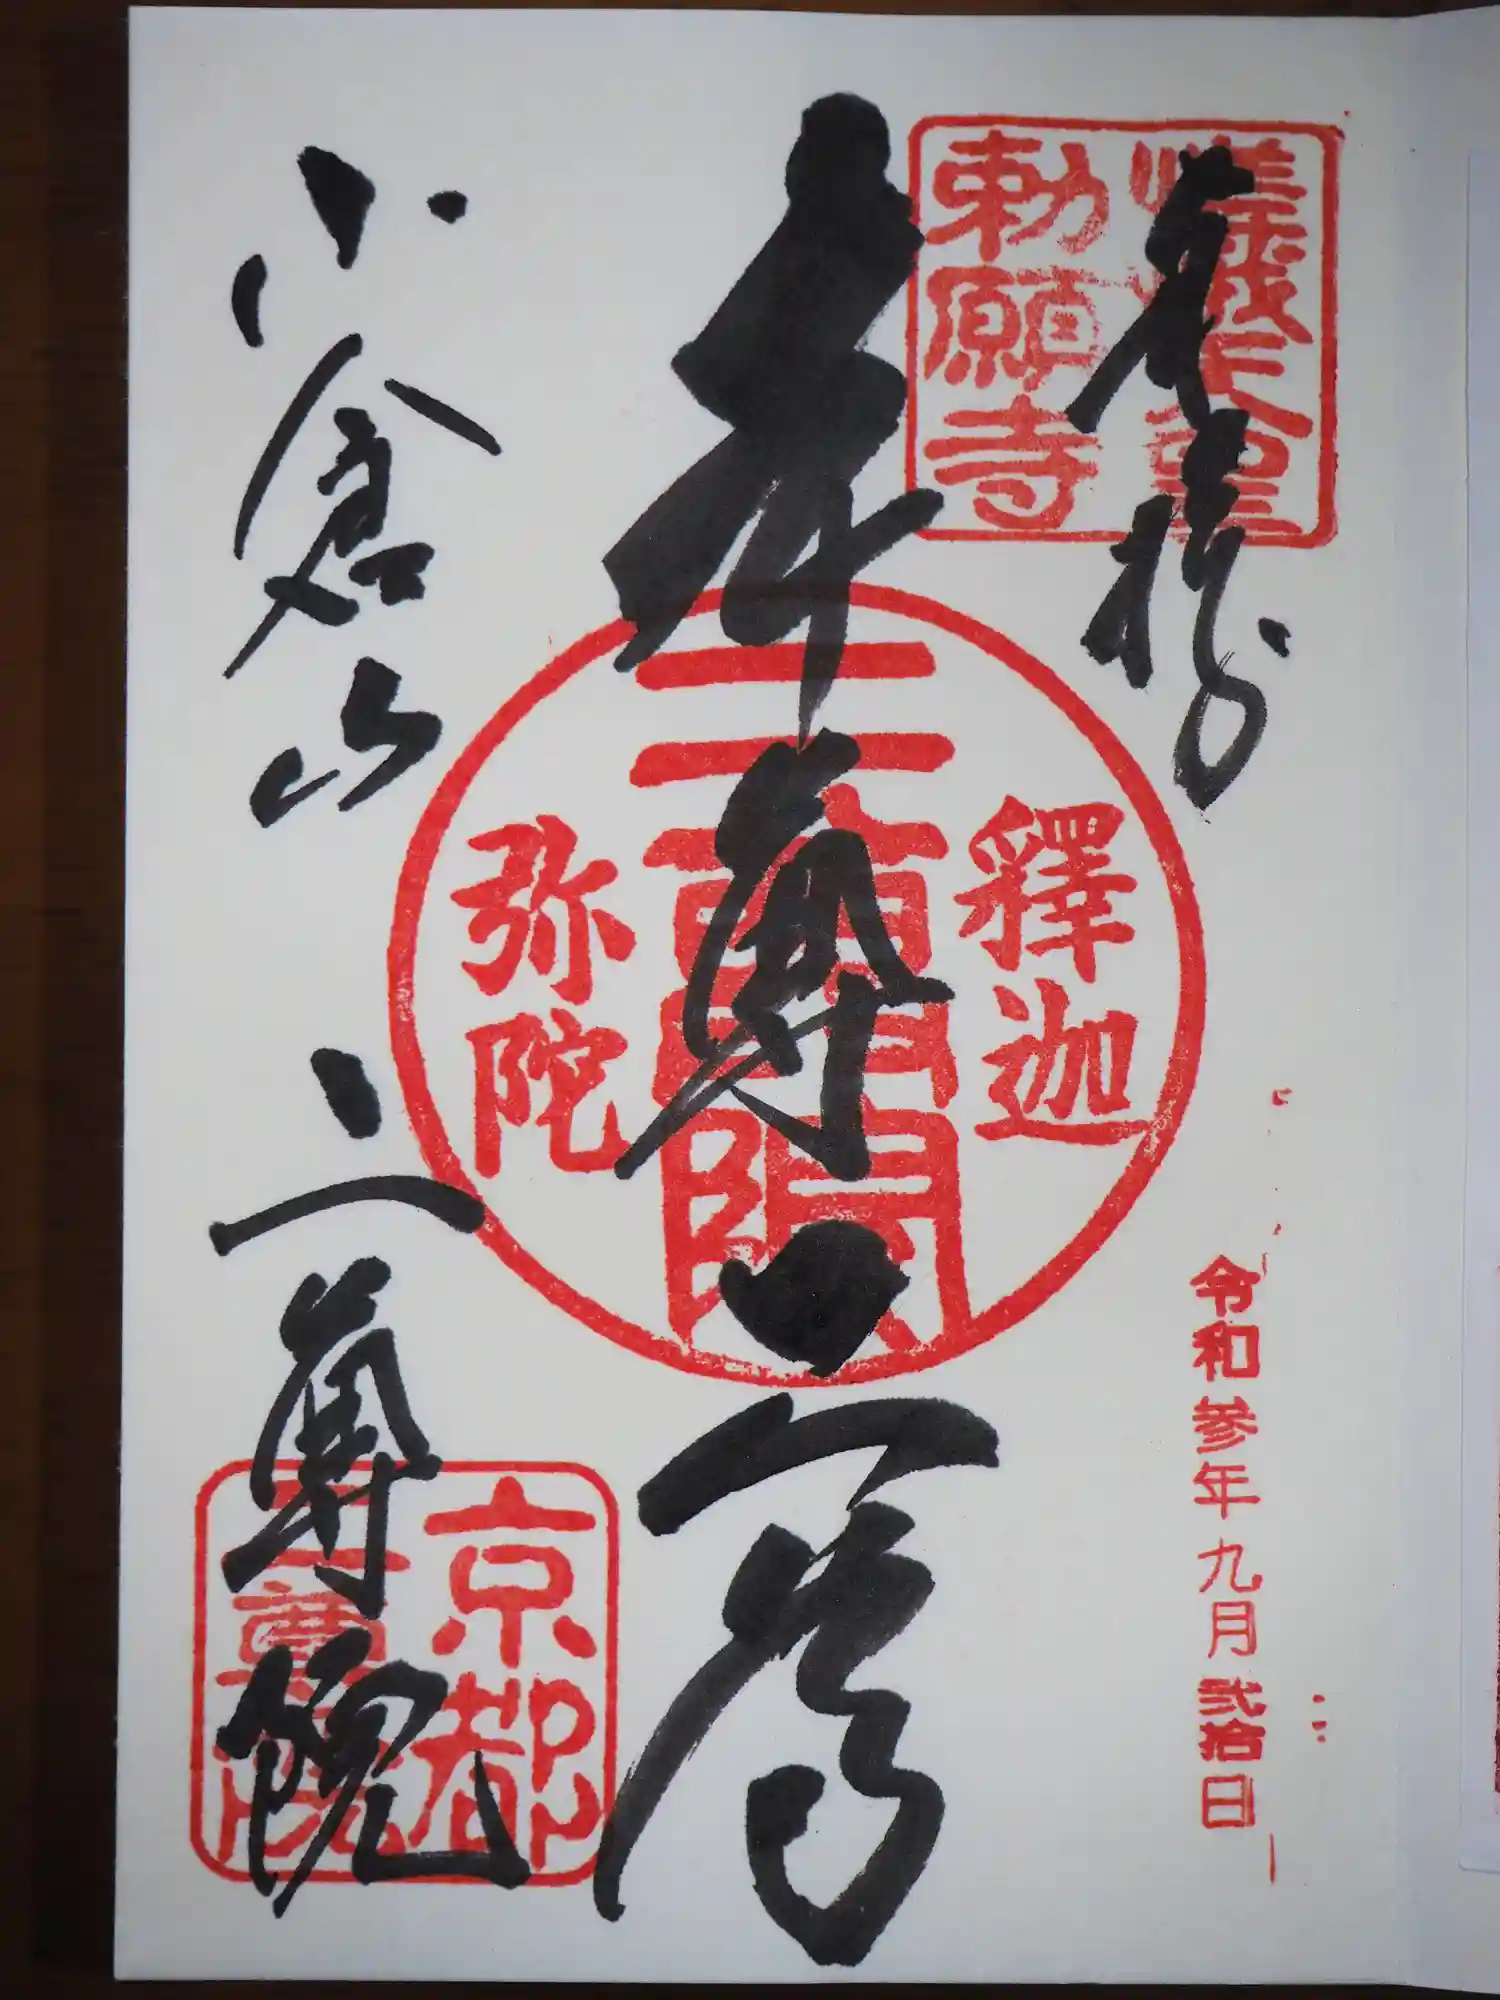 奉拝
嵯峨天皇
勅願寺
本尊二尊
釋迦
二尊院
弥陀
小倉山
二尊院
京都
二尊院
令和参年九月弐拾日